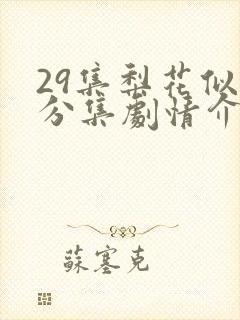 29集梨花似
分集劇情介
蘇塞克